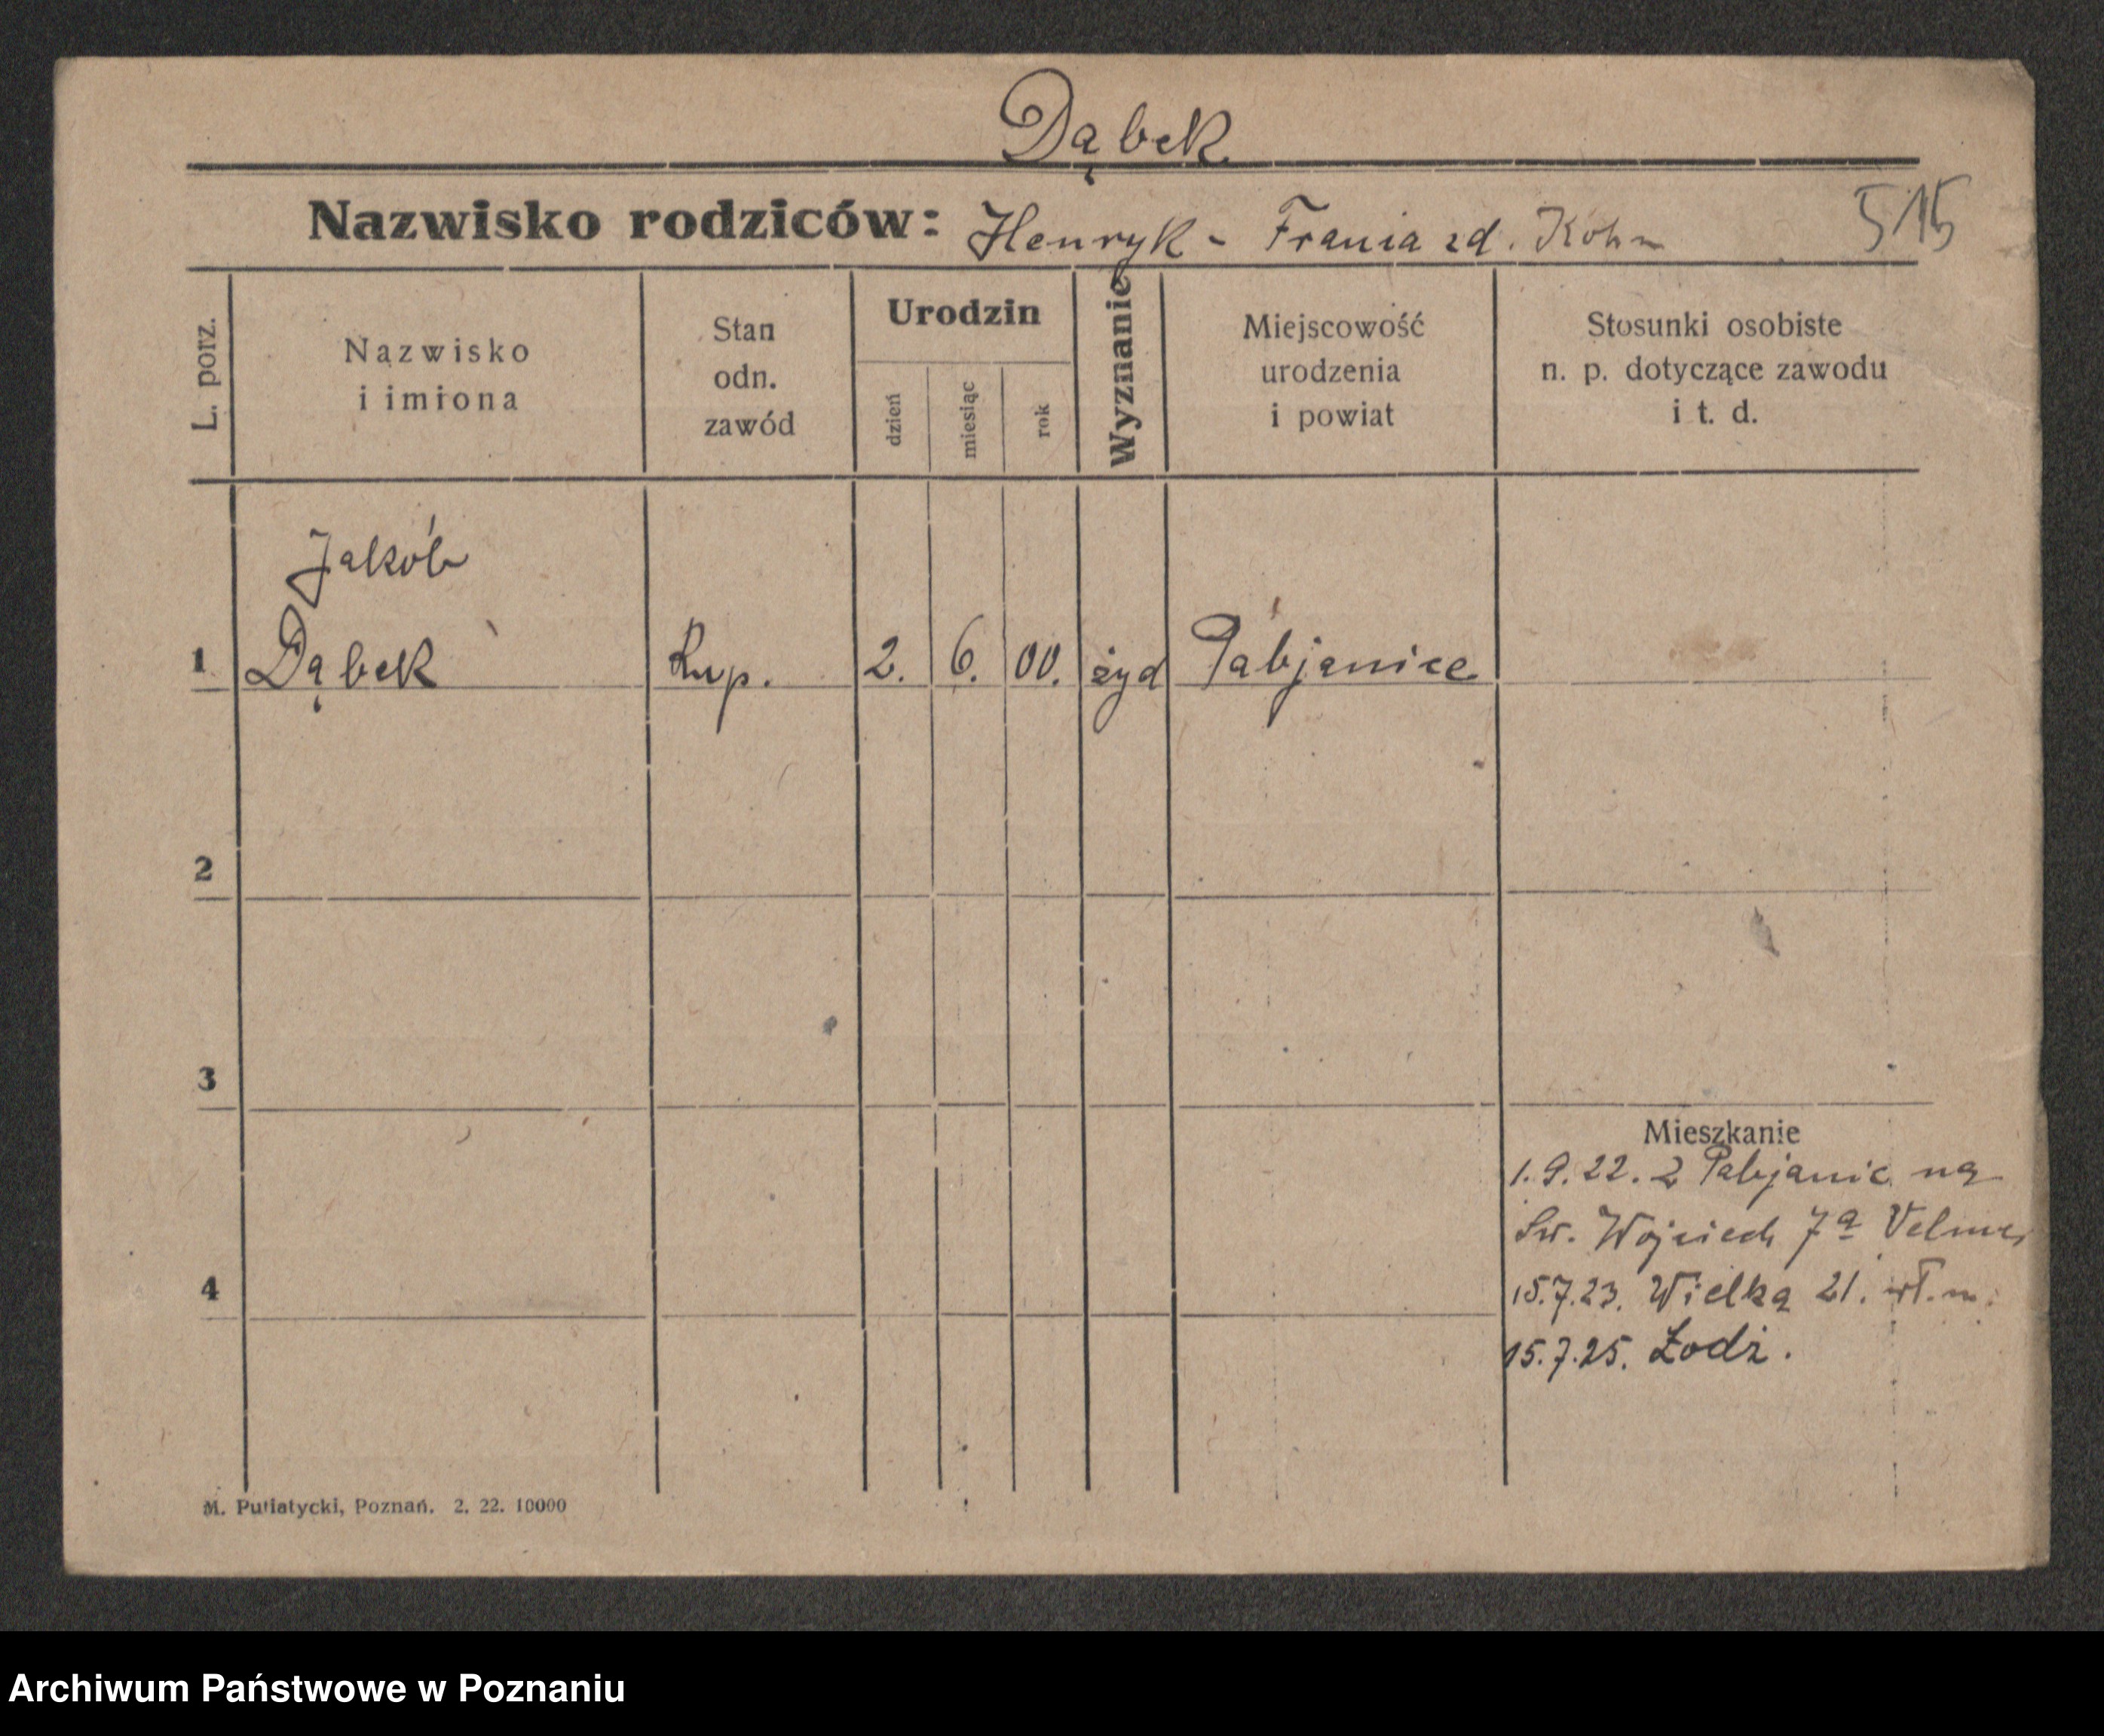 Dąbek
Nazwisko rodziców: Henryk - Frania zd. Kohn
515
L. porz.
Nazwisko
i imiona
Stan
odn.
zawód
Urodzin
dzień
miesiąc
rok
Wyznanie
Miejscowość
urodzenia
i powiat
Stosunki osobiste
n. p. dotyczące zawodu
i t. d.
Jakób
1 Dąbek kup. 2. 6. 00. żyd Pabjanice
2
3
Mieszkanie
1.9.22. z Pabjanic na
Św. Wojciech 7a
4
15.7.23. Wielka 21.
15.7.25. Łodź.
M. Putiatycki, Poznań. 2. 22. 10000
Archiwum Państwowe w Poznaniu